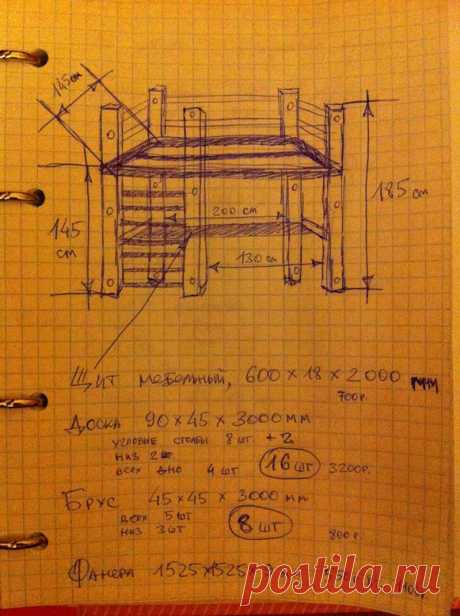 145 см
185 см
200 см
145
см
130 см
Щит мебельный, 600 х 18 х 2000 мм
700р.
Доска 90 х 45 х 3000 мм
угловые столбы 8 шт + 2
низ 2
4 шт
16 шт
3200р.
Брус 45 х 45 х 3000 мм
верх 5 шт
низ 3 шт
8 шт
800р.
Фанера 1525х1525
postila.ru